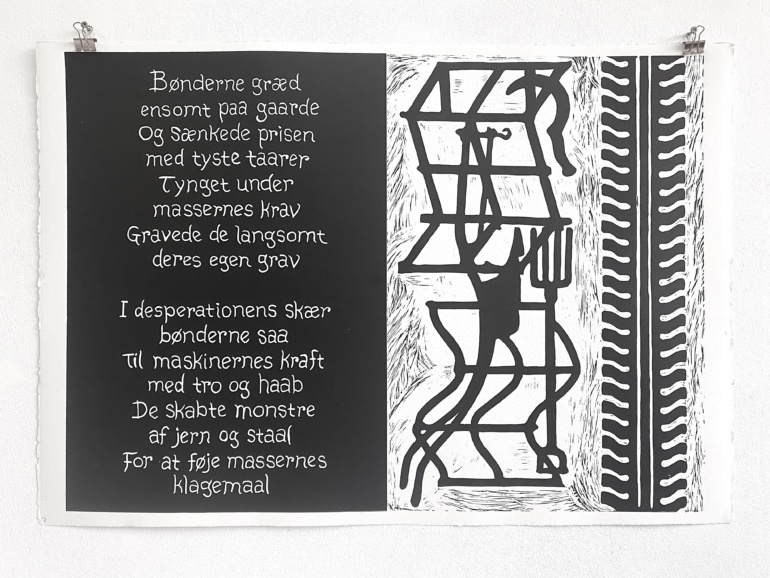 Bønderne græd
ensomt paa gaarde
Og sænkede prisen
med tyste taarer
Tynget under
massernes krav
Gravede de langsomt
deres egen grav
I desperationens skær
bønderne saa
Til maskinernes kraft
med tro og haab
De skabte monstre
af jern og staal
For at føje massernes
klagemaal